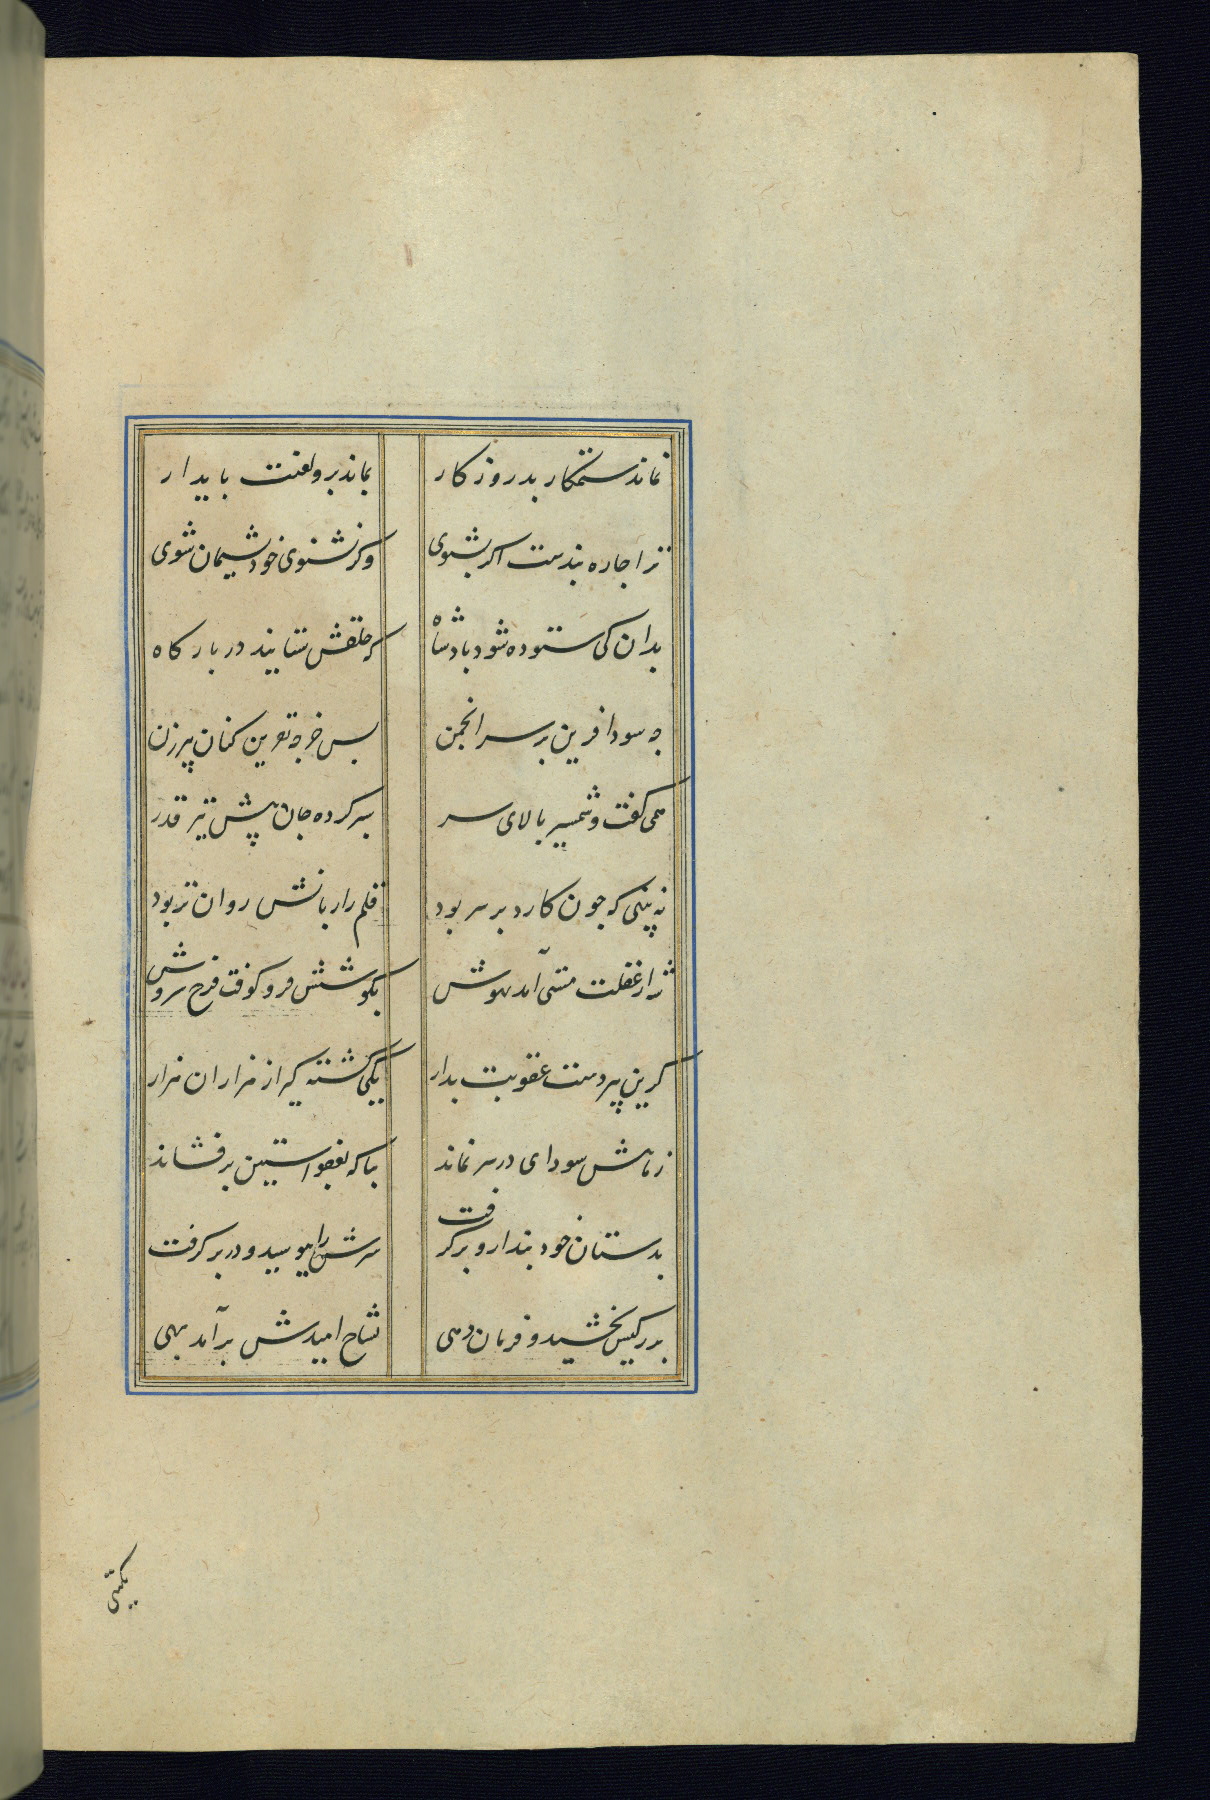 نماند ستمکار بد روزکار بماند برو لعنت بایدار
ترا جاره بندست اکر بشنوی وکر نشنوی خود بشیمان شوی
بدان کی ستوده شود بادشاه که خلقش ستایند در بارکاه
جه سود افرین بر سر انجمن بس خرجه نفرین کنان پیرزن
همی کفت و شمشیر بالای سر سبر کرده جان پیش تیر قدر
نه بینی که جون کارد بر سر بود قلم را زبانش روان تر بود
شه از غفلت مستی آمد بهوش بکوشش فرو کوفت فرخ سروش
کزین پیر دست عقوبت بدار یکی کشته کیر از هزاران هزار
زمانش سودای در سر نماند بس آنکه بعفو استین بر فشاند
بدستان خود بند ازو برکرفت سرش را ببوسید و در بر کرفت
بزرکیش بخشید و فرمان دهی بشاخ امیدش بر آمد بهی